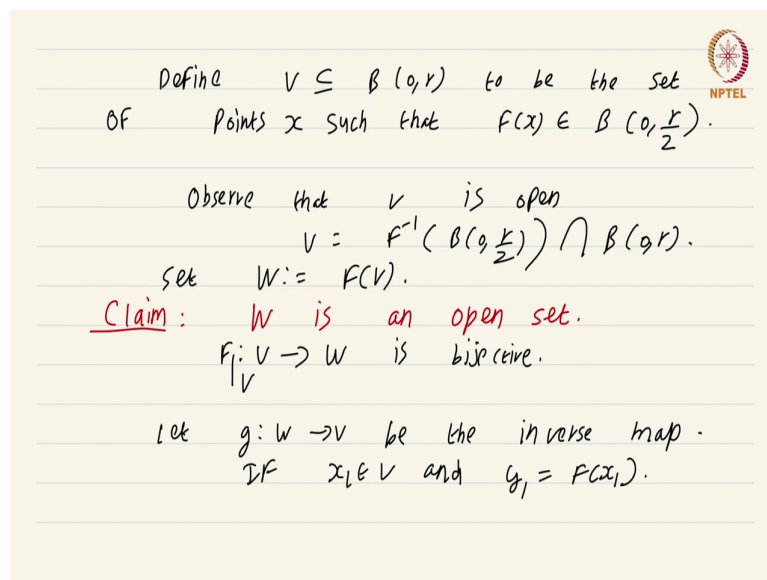 Define V ⊆ B (0,r) to be the set
NPTEL
OF Points x such that F(x) ∈ B (0, r/2).
Observe that V is open
V = F⁻¹ ( B(0, r/2) ) ⋂ B(0,r).
Set W := F(V).
Claim : W is an open set.
F|_V : V → W is bijective.
Let g : W → V be the inverse map.
IF x₁ ∈ V and y₁ = F(x₁).